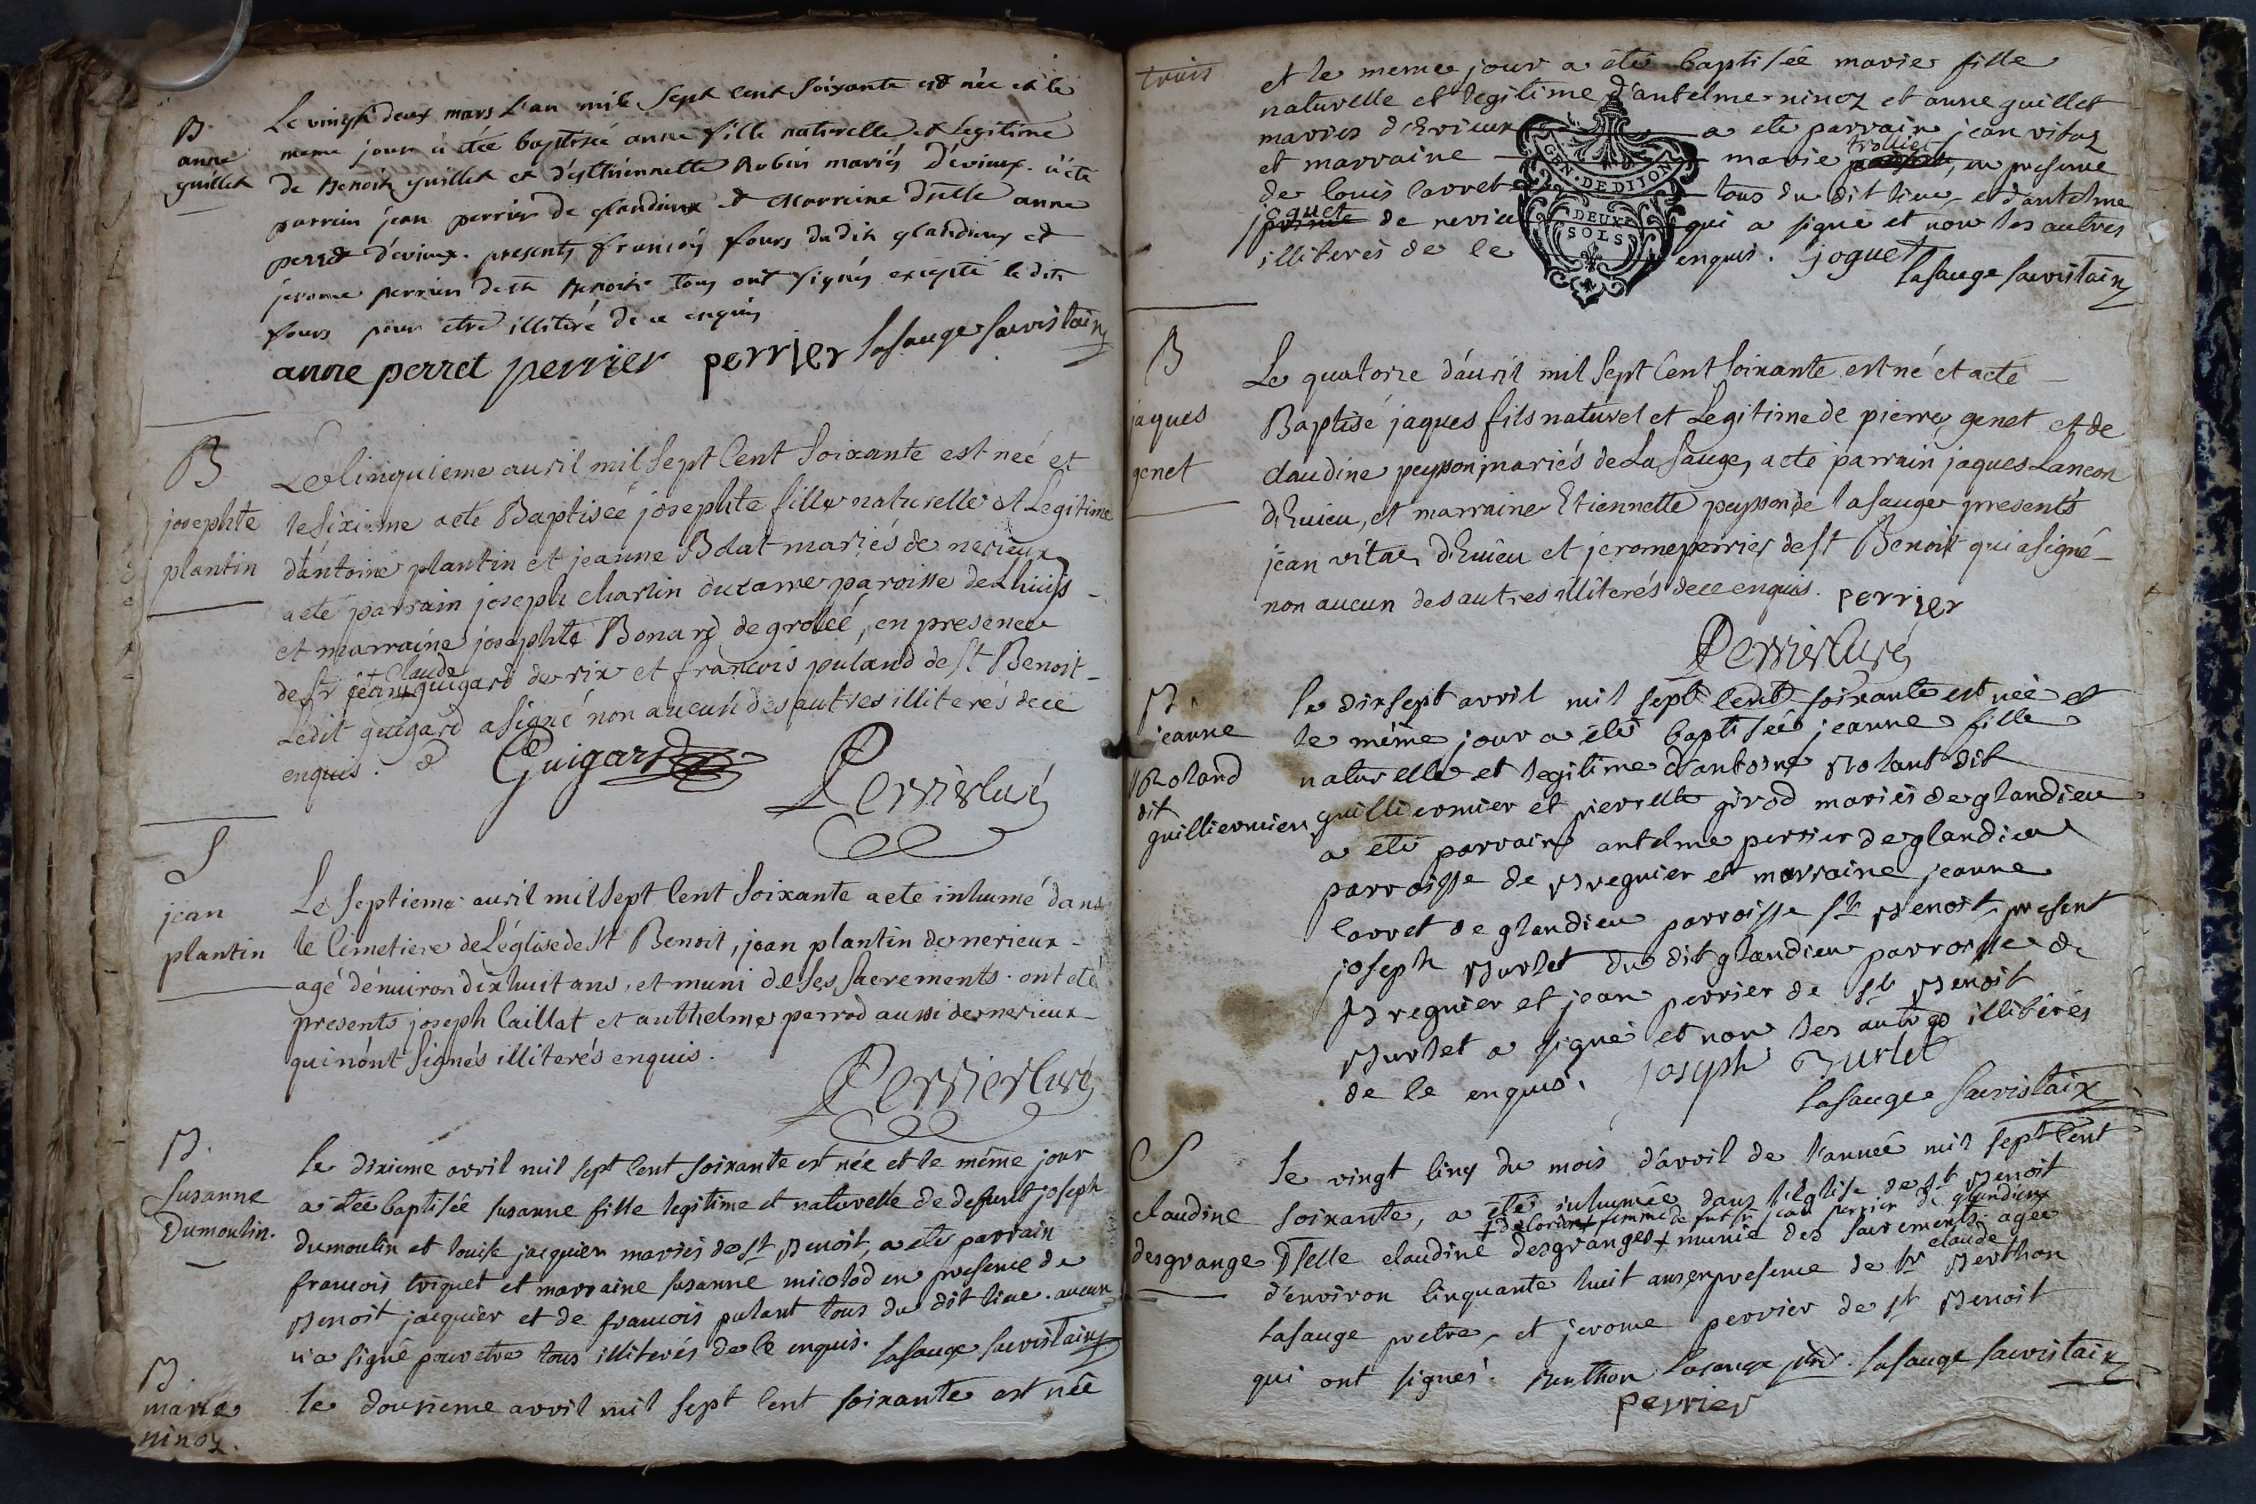 B.
anne
guillet
Le vingt deux mars l'an mile sept cent soixante est née et le
meme jour a étée baptisée anne fille naturelle et legitime
de Benoit guillet et d'esthiennette Robin mariés d'évieux. a été
parrain jean perrier de glandieux et Marraine dlle anne
perret d'évieux. presents françois fours dudit glandieux et
jerome perrier de st Benoit tous ont signés excepté le dit
fours pour etre illiteré de ce enquis
anne perret perrier perrier Lasauge sacristain
B
josephte
plantin
Le Cinquieme auril mil sept Cent Soixante est neé et
le sixieme a eté Baptiseé josephte fille naturelle et Legitime
d'antoine plantin et jeanne Bolat mariés de nerieux
a eté parrain joseph charlin duzarre paroisse de Lhuijs
et marraine josephte Bonard de groleé, en presence
de sr jean Claude guigard de rix et francois puland de st Benoit
Ledit guigard a signé non aucun des autres illiterés de ce
enquis. Guigard
Perrier Curé
S
jean
plantin
Le septieme auril mil sept Cent Soixante a ete inhumé dans
le Cimetiere de L'église de st Benoit, jean plantin de nerieux
agé d'enuiron dix huit ans, et muni de Ses Sacrements. ont eté
presents joseph Caillat et anthelme perrod aussi de nerieux
qui n'ont signés illiterés enquis.
Perrier Curé
B.
Susanne
Dumoulin.
le dixieme avril mil sept cent soixante est née et le même jour
a étée baptisée susanne fille legitime et naturelle de defunt joseph
dumoulin et louise jacquier mariés de st Benoit, a été parrain
francois triquet et marraine susanne micolod en presence de
Benoit jacquier et de francois pulant tous du dit lieu. aucun
n'a signé pour etre tous illiterés de ce enquis. Lasauge sacristain
B.
marie
ninoz.
le douzieme avril mil sept cent soixante est née
trois
et le meme jour a été baptisée marie fille
naturelle et legitime d'antelme ninoz et anne guillet
mariés d'Evieux a ete parrain jean vitoz
et marraine marie trolliet, en presence
de louis Carret tous du dit lieu, et d'antelme
joguet de nerieu qui a signé et non les autres
illiterés de ce enquis. joguet
Lasauge sacristain
GEN. DE DIJON
DEUX
SOLS
B
jaques
genet
Le quatorze d'auril mil sept Cent Soixante est né et a eté
Baptisé jaques fils naturel et Legitime de pierre genet et de
claudine peysson mariés de La Sauge, a eté parrain jaques Lancon
d'Euieu, et marraine Etiennette peysson de la sauge presents
jean vitoz d'Euieu et jerome perrier de st Benoit qui a signé
non aucun des autres illiterés de ce enquis. perrier
Perrier Curé
B.
jeanne
Roland
dit
guilliermier
le dix sept avril mil sept cent soixante est née et
le même jour a été baptisée jeanne fille
naturelle et legitime d'antoine Rolant dit
guilliermier et pierrette girod mariés de glandieu
a été parrain antelme perrier de glandieu
parroisse de Bregnier et marraine jeanne
Carret de glandieu parroisse st Benoit present
joseph Burlet du dit glandieu parroisse de
Bregnier et jean perrier de st Benoit
Burlet a signé et non les autres illiterés
de ce enquis. joseph Burlet
Lasauge sacristain
S
claudine
desgrange
le vingt cinq du mois d'avril de l'année mil sept cent
soixante, a été inhumée dans l'Eglise de st Benoit
femme de feu sr jean perrier de glandieux
Dlelle claudine desgranges munie des sacrements agée
d'environ cinquante huit ans en presence de sr claude Berthon
Lasauge pretre, et jerome perrier de st Benoit
qui ont signés. Berthon Lasauge ptre. Lasauge sacristain
perrier